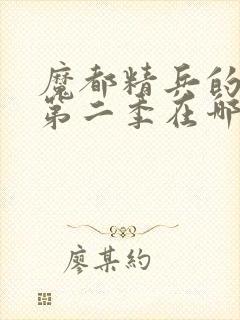 魔都精兵的
第二季在哪
廖某約